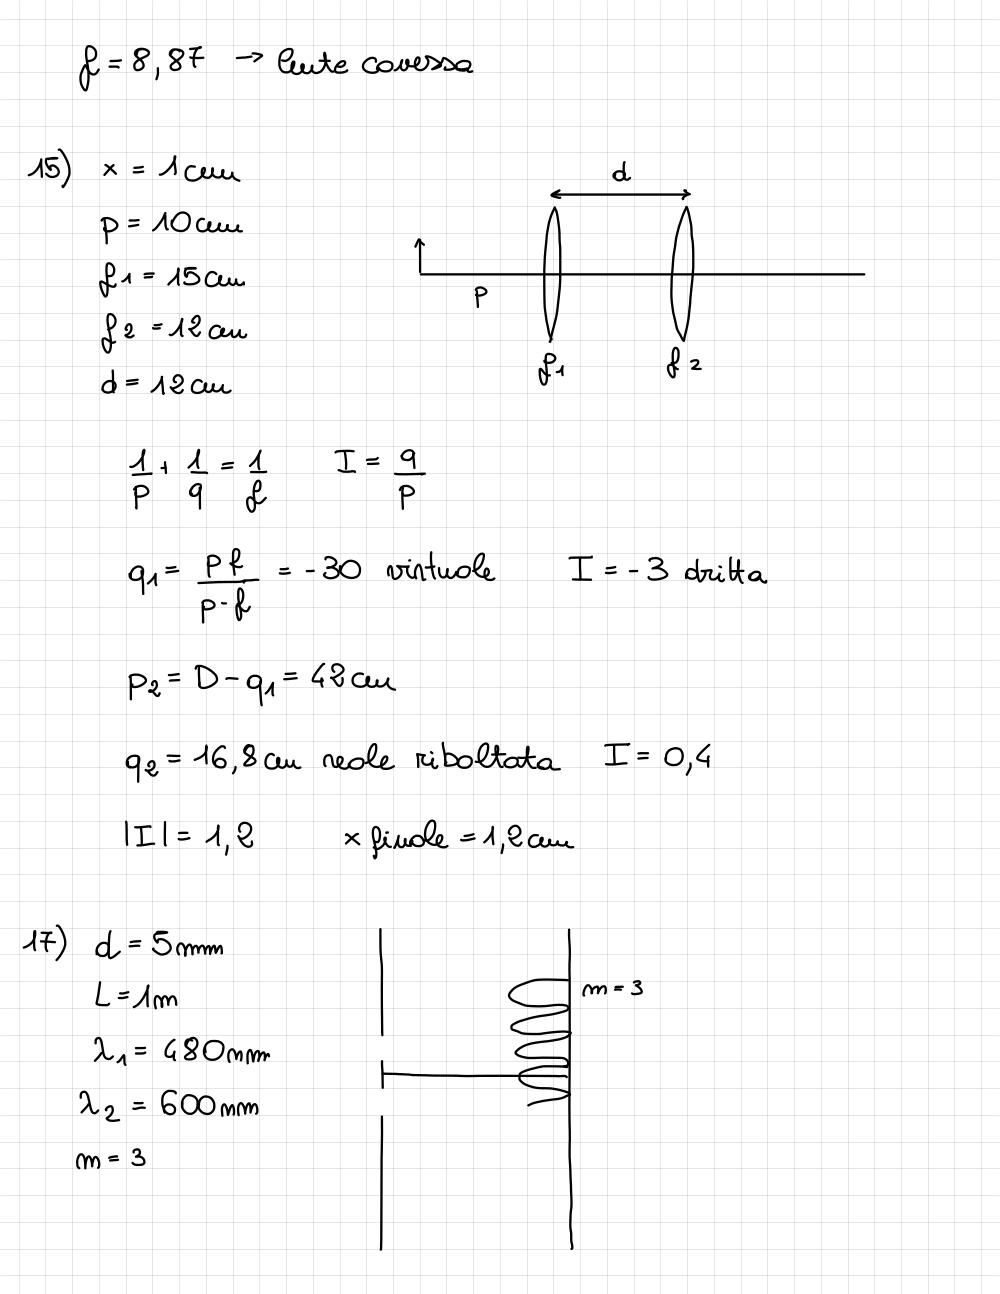 f = 8,87 → lente covessa
15) x = 1 cm
p = 10 cm
f1 = 15 cm
f2 = 12 cm
d = 12 cm
d
p
f1
f2
1/p + 1/q = 1/f I = q/p
q1 = pf/p-f = -30 virtuale I = -3 dritta
p2 = D - q1 = 42 cm
q2 = 16,8 cm reale riboltata I = 0,4
|I| = 1,2 x finale = 1,2 cm
17) d = 5 mm
L = 1 m
λ1 = 480 nm
λ2 = 600 nm
m = 3
m = 3